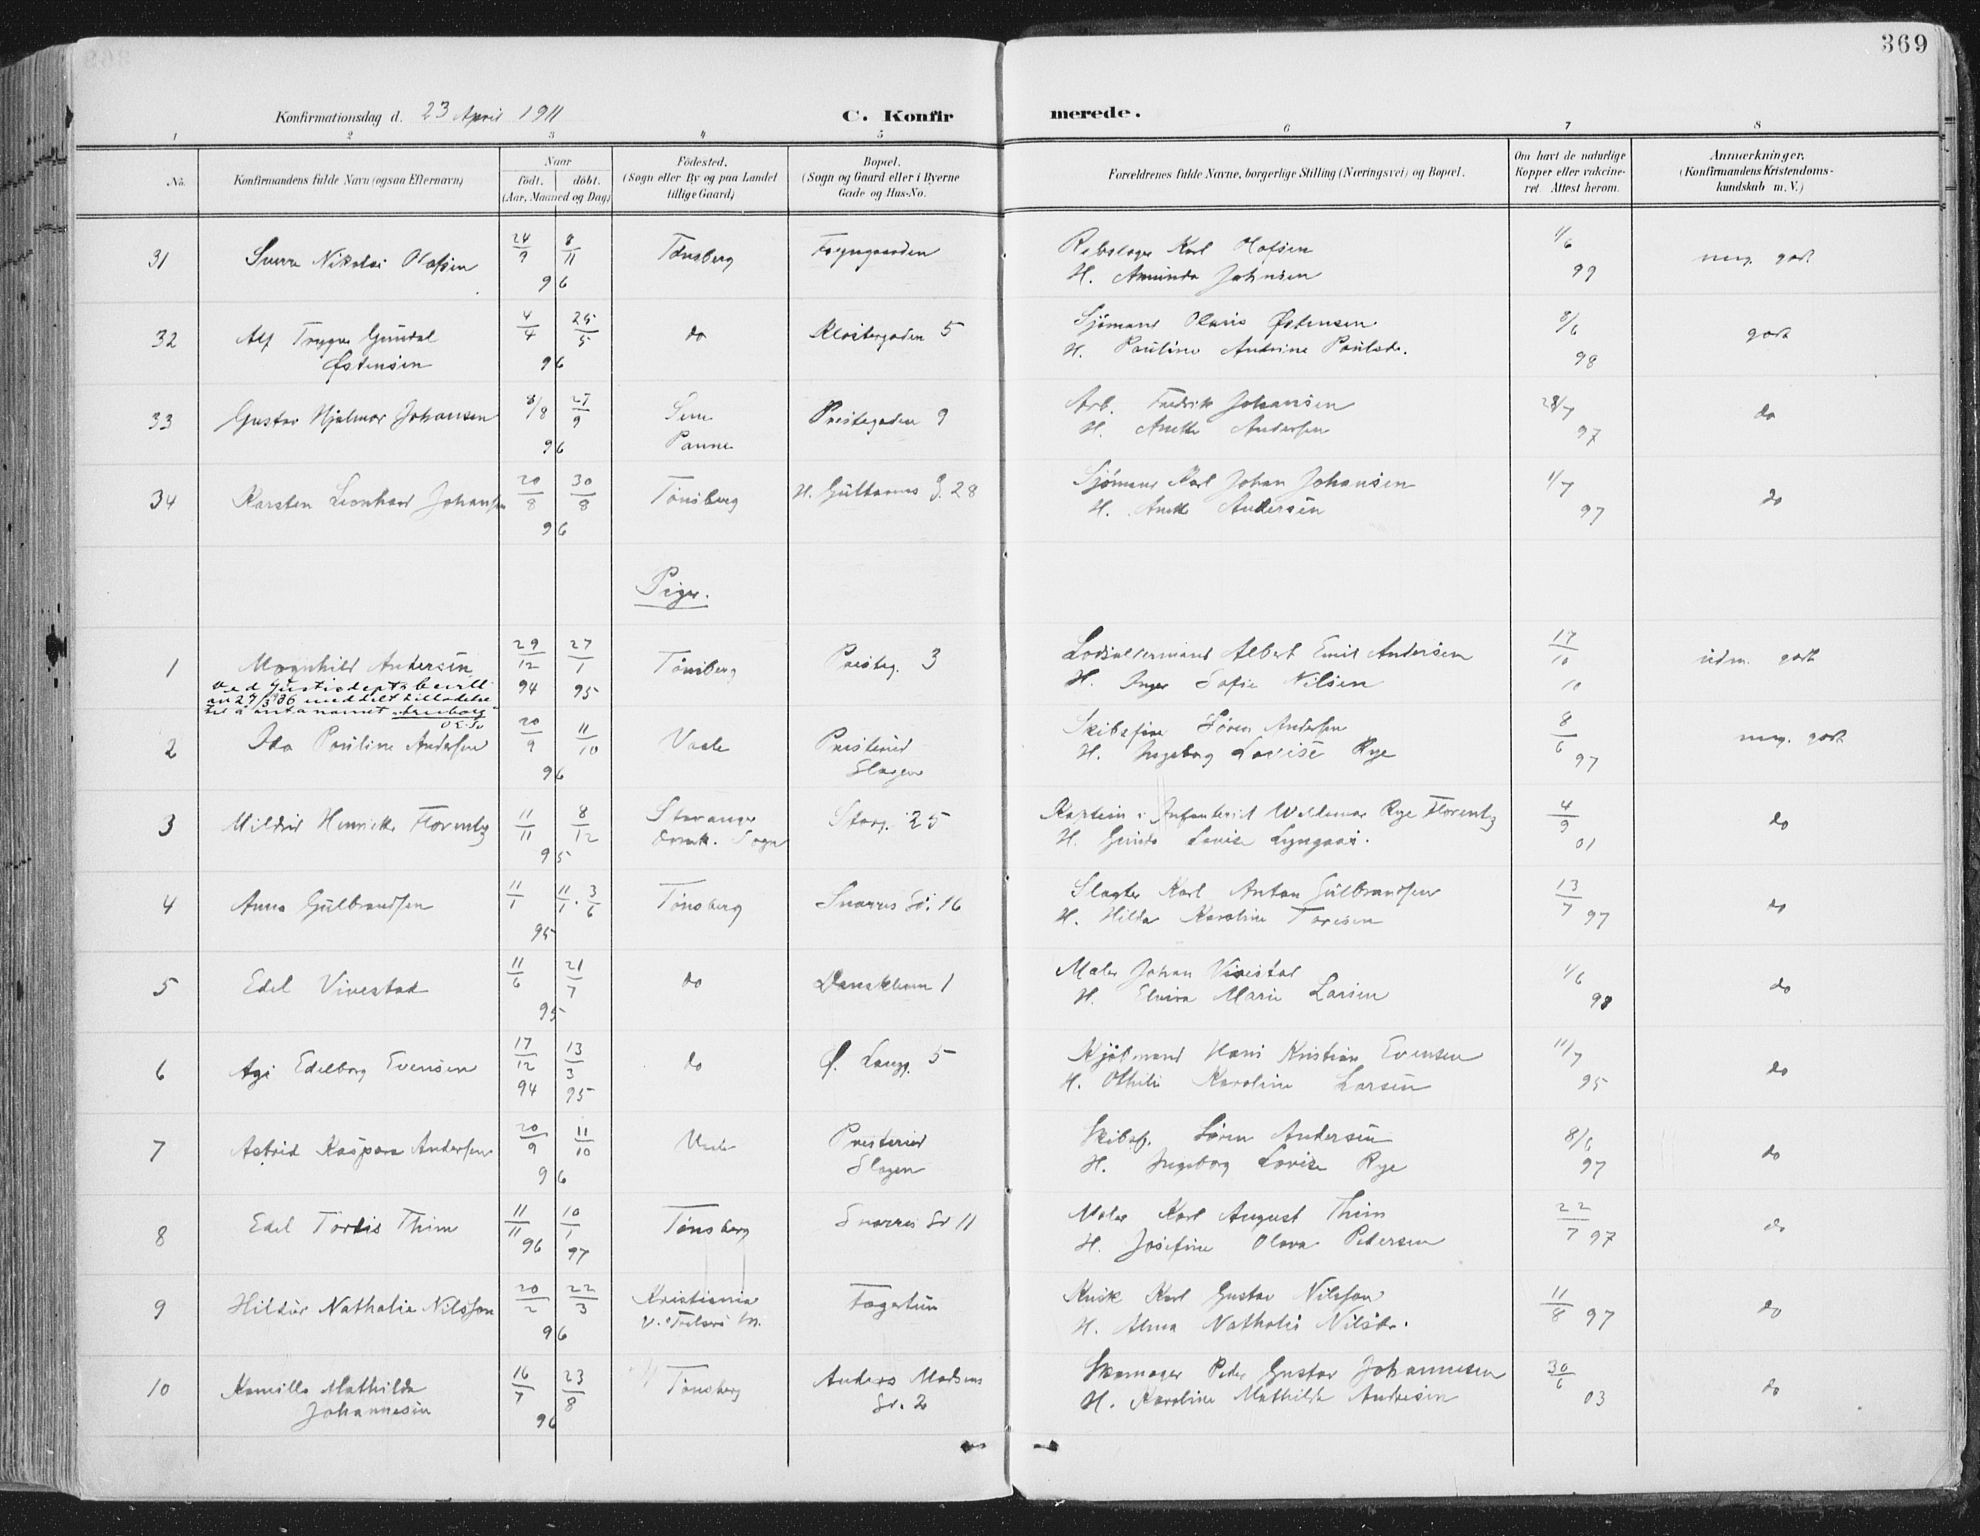 369
Konfirmationsdag d. 23 April 1911 C. Konfirmerede.
1 2 3 4 5 6 7 8
No. Konfirmandens fulde Navn (ogsaa Efternavn) Naar født. døbt. (Aar, Maaned og Dag) Födested. (Sogn eller By og paa Landet tillige Gaard) Bopæl. (Sogn og Gaard eller i Byerne Gade og Hus-No. Forældrenes fulde Navne, borgerlige Stilling (Næringsvei) og Bopæl. Om havt de naturlige Kopper eller vakcineret. Attest herom. Anmærkninger. (Konfirmandens Kristendomskundskab m. V.)
31 Sverre Nikolai Olafsen 24/9 8/11 96 Tønsberg Færgegaarden Rebslager Karl Olafsen 1/6 99 meg. godt
H. Aminda Johnsen
32 Alf Trygve Gundal 4/4 25/5 96 do Klostergaden 5 Sjømand Olaus Østensen 8/6 98 godt
Østensen H. Pauline Andrine Paulsdr.
33 Gustav Hjalmar Johansen 8/8 27/9 96 Sem Prestegaden 9 Arb. Fredrik Johansen 28/7 97 do
H. Anette Andersen
34 Karsten Leonhard Johansen 20/8 30/8 96 Tønsberg H. Guttorms G. 28 Sjømand Karl Johan Johansen 1/7 97 do
H. Anette Andersen
Piger.
1 Magnhild Andersen 29/12 94 27/1 95 Tønsberg Presteg. 3 Lodsoldermand Albert Emil Andersen 17/10 10 udm. godt
ved Justisdepts bevill. H. Inger Sofie Nilsen
av 27/3 1936 meddelt tilladelse
til å anta navnet
2 Ida Pauline Andersen 20/9 11/10 96 Vaale Presterød Skibsfører Søren Andersen 8/6 97 meg. godt
Slagen H. Ingeborg Lovise Rye
3 Mildrid Henriette Florentz 11/11 8/12 95 Stavanger Storg. 25 Kaptein i Infanteriet Waldemar Rye Florentz 4/9 01 do
Domk. Sogn H. Gunda Lovise Lyngaas.
4 Anna Gulbrandsen 11/1 11/1. 3/6 95 Tønsberg Snorres Gd. 16 Slagter Karl Anton Gulbrandsen 13/7 97 do
H. Hilda Karoline Toresen
5 Edel Vivestad 11/6 21/7 95 do Danskebum 1 Maler Johan Vivestad 1/6 98 do
H. Elvira Marie Larsen
6 Agi Edelborg Evensen 17/12 94 13/3 95 do Ø. Langg. 5 Kjøbmand Hans Kristian Evensen 11/7 95 do
H. Othilie Karoline Larsen
7 Astrid Kaspara Andersen 20/9 11/10 96 Vaale Presterød Skibsf. Søren Andersen 8/6 97 do
Slagen H. Ingeborg Lovise Rye
8 Edel Tordis Thim 11/11 96 10/1 97 Tønsberg Snorres Gd 11 Maler Karl August Thim 22/7 97 do
H. Josefine Olava Pedersen
9 Hildur Nathalie Nilsson 20/2 22/3 96 Kristiania Fagertun Kusk Karl Gustav Nilsson 11/8 97 do
H. Alma Nathalie Nilsdr.
10 Kamilla Mathilda 16/7 23/8 96 Tønsberg Anders Madsens Skomager Peder Gustav Johannesen 30/6 03 do
Johannesen Gd. 2 H. Karoline Mathilde Andresen